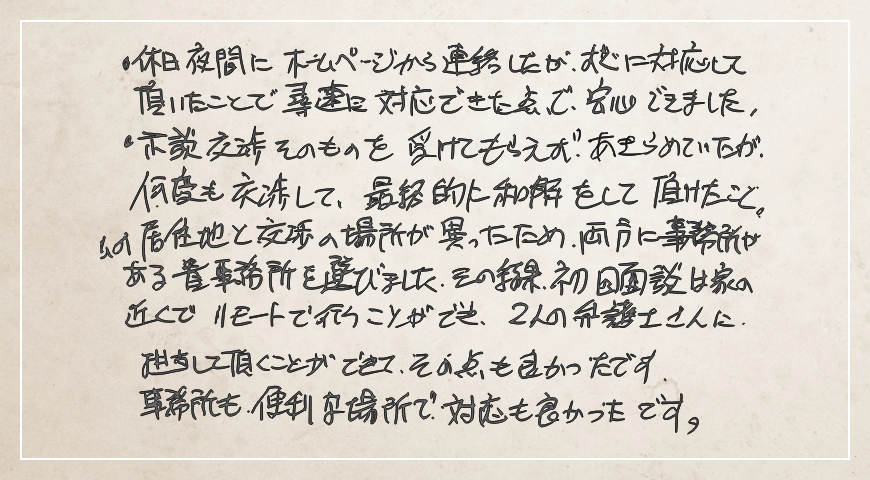 •休日夜間に ホームページから連絡したが、すぐに対応して
頂いたことで 尋速に 対応できた点で、安心できました。
•示談交渉そのものを 受けてもらえず、あきらめていたが、
何度も交渉して、最終的に和解をして頂けたこと。
私の居住地と交渉の場所が異ったため、両方に事務所が
ある貴事務所を選びました。その結果、初回面談は家の
近くで リモートで行うことができ、2人の弁護士さんに、
担当して頂くことができて、その点も良かったです。
事務所も、便利な場所で、対応も良かったです。